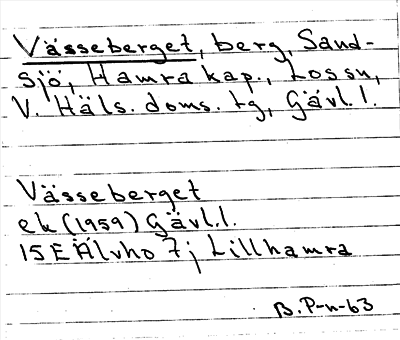 Vässeberget, berg, Sand-
sjö, Hamra kap., Lossn,
V. Häls. doms. tg, Gävl. l.
Vässeberget
ek (1959) Gävl.l.
15E Älvho 7j Lillhamra
B. P-n-63